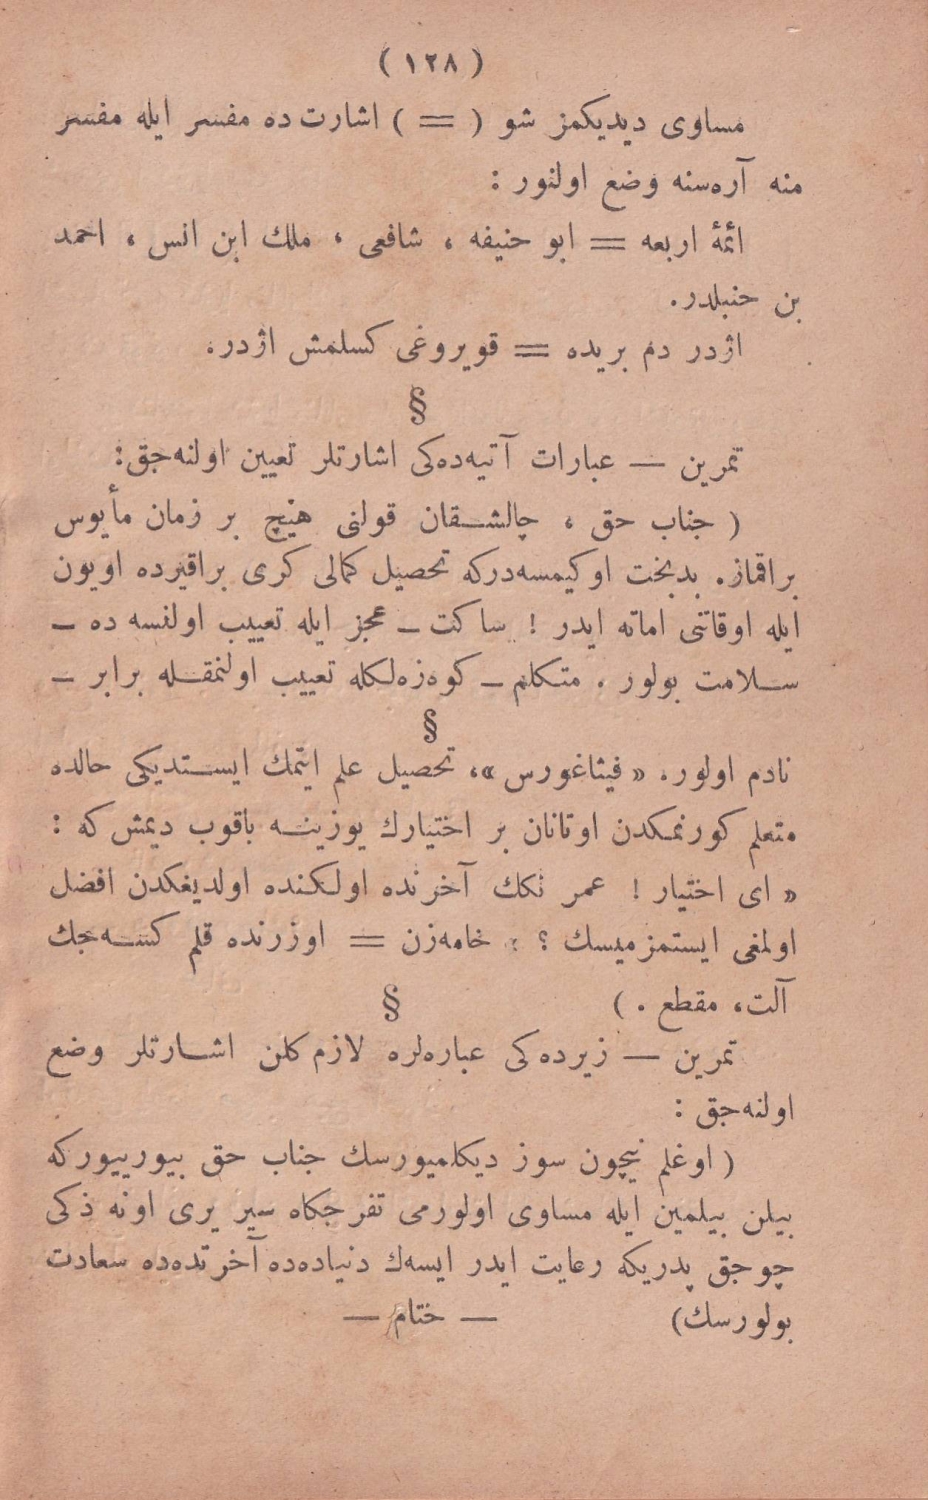 ( ١٢٨ )
مساوی دیدیکمز شو ( = ) اشارت ده مفسر ایله مفسر
منه آره‌سنه وضع اولنور :
ائمۀ اربعه = ابو حنیفه ، شافعی ، ملك ابن انس ، احمد
بن حنبلدر.
اژدر دم بریده = قویروغی کسلمش اژدر.
§
تمرین — عبارات آتیه‌ده‌کی اشارتلر تعیین اولنه‌جق:
( جناب حق ، چالشقان قولنی هیچ بر زمان مأیوس
براقماز. بدبخت اوکیمسه‌درکه تحصیل کمالی کری براقیرده اویون
ایله اوقاتنی اماته ایدر ! ساکت ـ عجز ایله تعییب اولنسه ده ـ
سلامت بولور . متکلم ـ کوه‌زه‌لکله تعییب اولنمقله برابر ـ
§
نادم اولور. « فیثاغورس »، تحصیل علم ایتمك ایستدیکی حالده
متعلم کورنمکدن اوتانان بر اختیارك یوزینه باقوب دیمش که :
« ای اختیار ! عمر نکك آخرنده اولکنده اولدیغکدن افضل
اولمغی ایستمزمیسك ؟ خامه‌زن = اوزرنده قلم کسه‌جك
آلت، مقطع . ) §
تمرین — زیرده‌کی عباره‌لره لازم کلن اشارتلر وضع
اولنه‌جق :
( اوغلم نیچون سوز دیکلمیورسك جناب حق بیورییورکه
بیلن بیلمین ایله مساوی اولورمی تفرجکاه سیر یری اونه ذکی
چوجق پدریکه رعایت ایدر ایسه‌ك دنیاده‌ده آخرتده‌ده سعادت
بولورسك) — ختام —